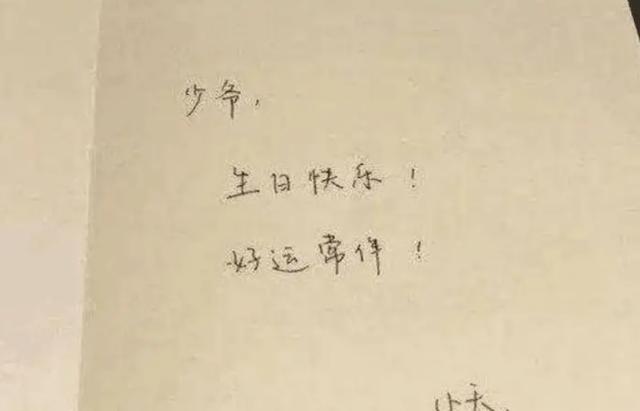 少爷,
生日快乐!
好运常伴!